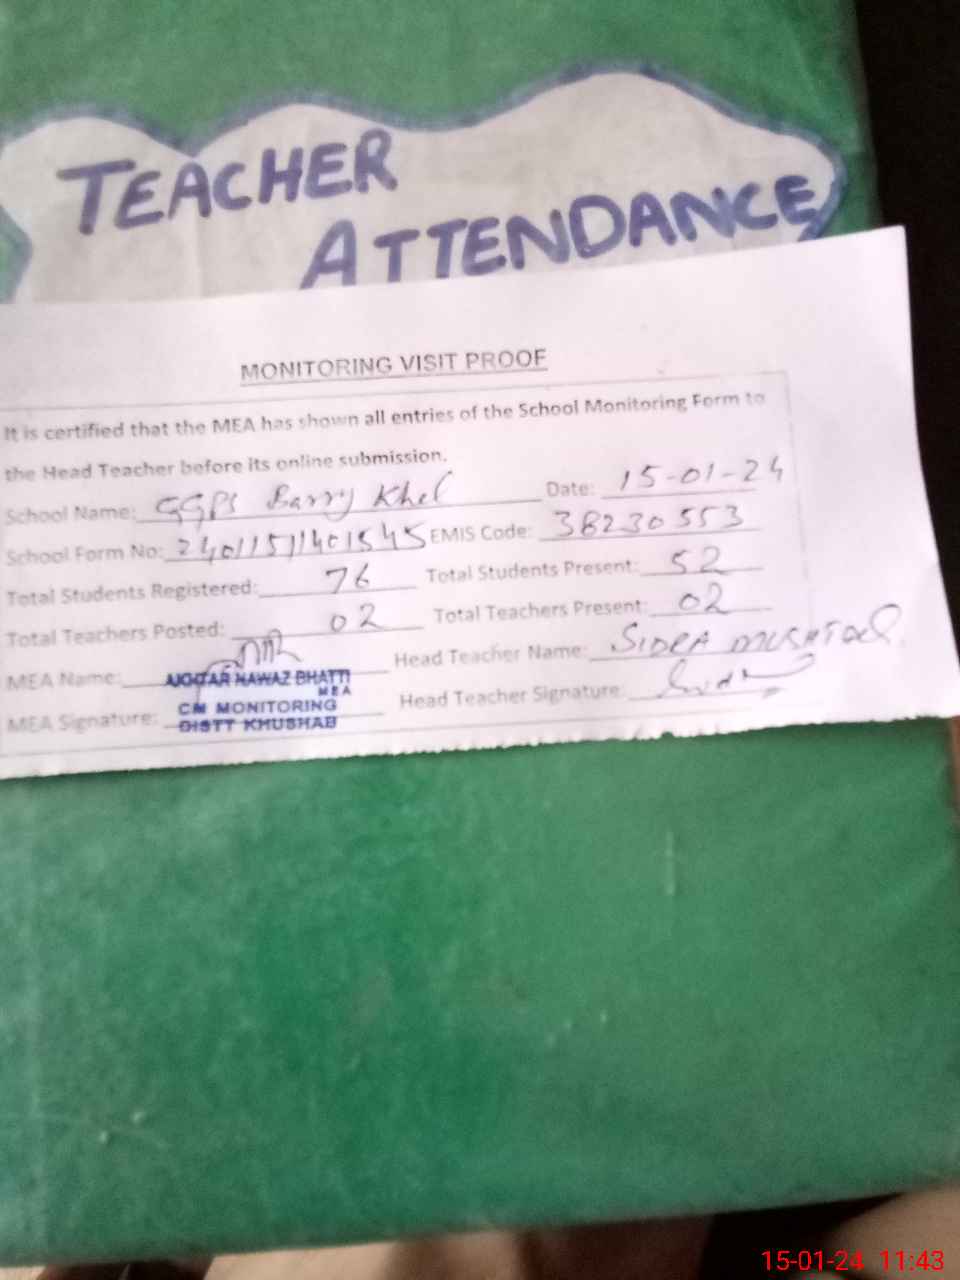 TEACHER
ATTENDANCE
MONITORING VISIT PROOF
It is certified that the MEA has shown all entries of the School Monitoring Form to
the Head Teacher before its online submission.
School Name: GGPS Barry Khel Date: 15-01-24
School Form No: 24011511401545 EMIS Code: 38230553
Total Students Registered: 76 Total Students Present: 52
Total Teachers Posted: 02 Total Teachers Present: 02
MEA Name: AKHTAR NAWAZ BHATTI Head Teacher Name: SIDRA MUSHTAQ
MEA
CM MONITORING
MEA Signature: DISTT KHUSHAB Head Teacher Signature:
15-01-24 11:43